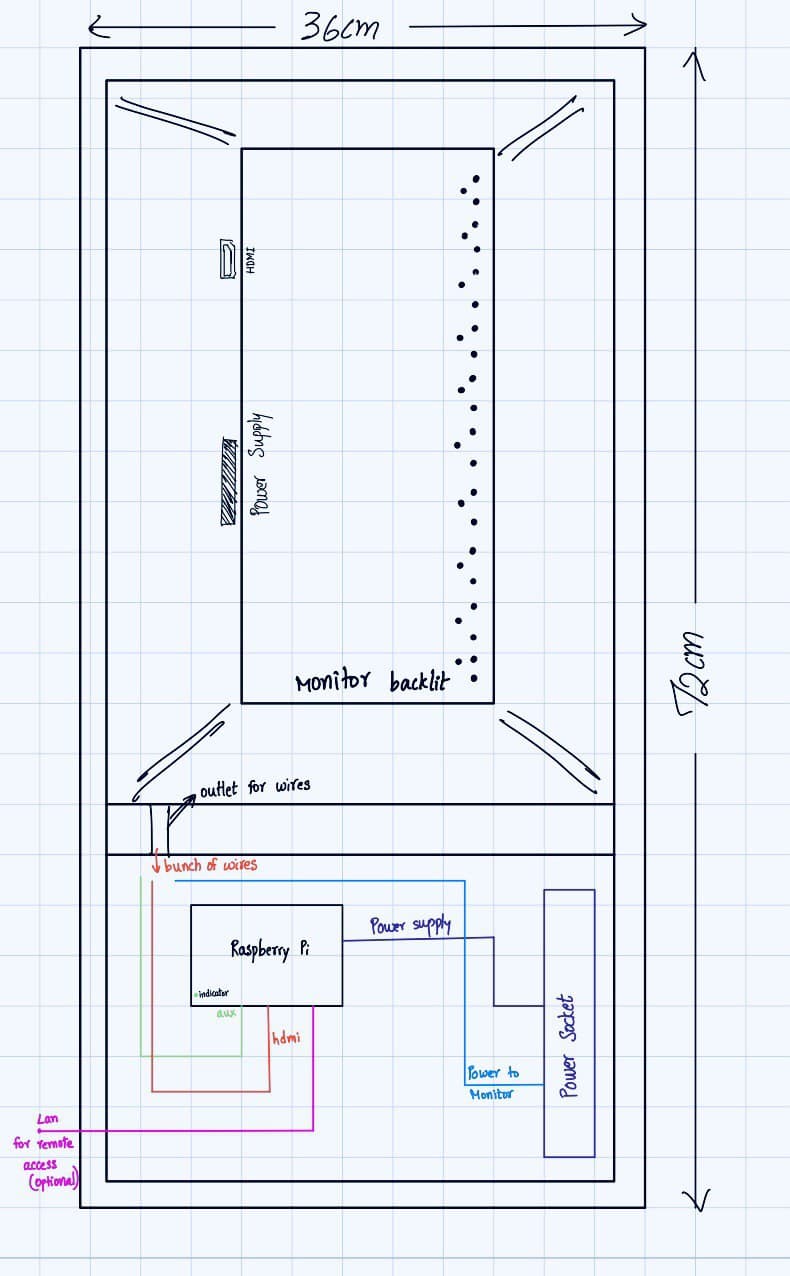 36cm
HDMI
Power Supply
72cm
Monitor backlit
outlet for wires
bunch of wires
Power supply
Raspberry Pi
indicator
aux
hdmi
Power Socket
Power to
Monitor
Lan
for remote
access
(optional)